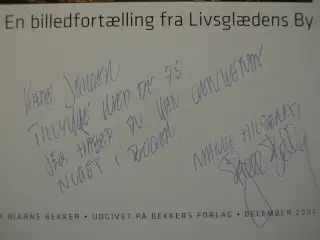 En billedfortælling fra Livsglædens By
KÆRE
TILLYKKE MED DE 75
JEG HÅBER DU KAN GENKENDE
NOGET I BOGEN
MANGE HILSNER
AF BJARNE BEKKER • UDGIVET PÅ BEKKERS FORLAG • DECEMBER 2001